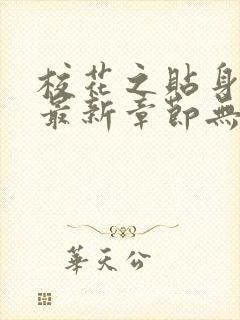 校花之貼身
最新章節無
華天公